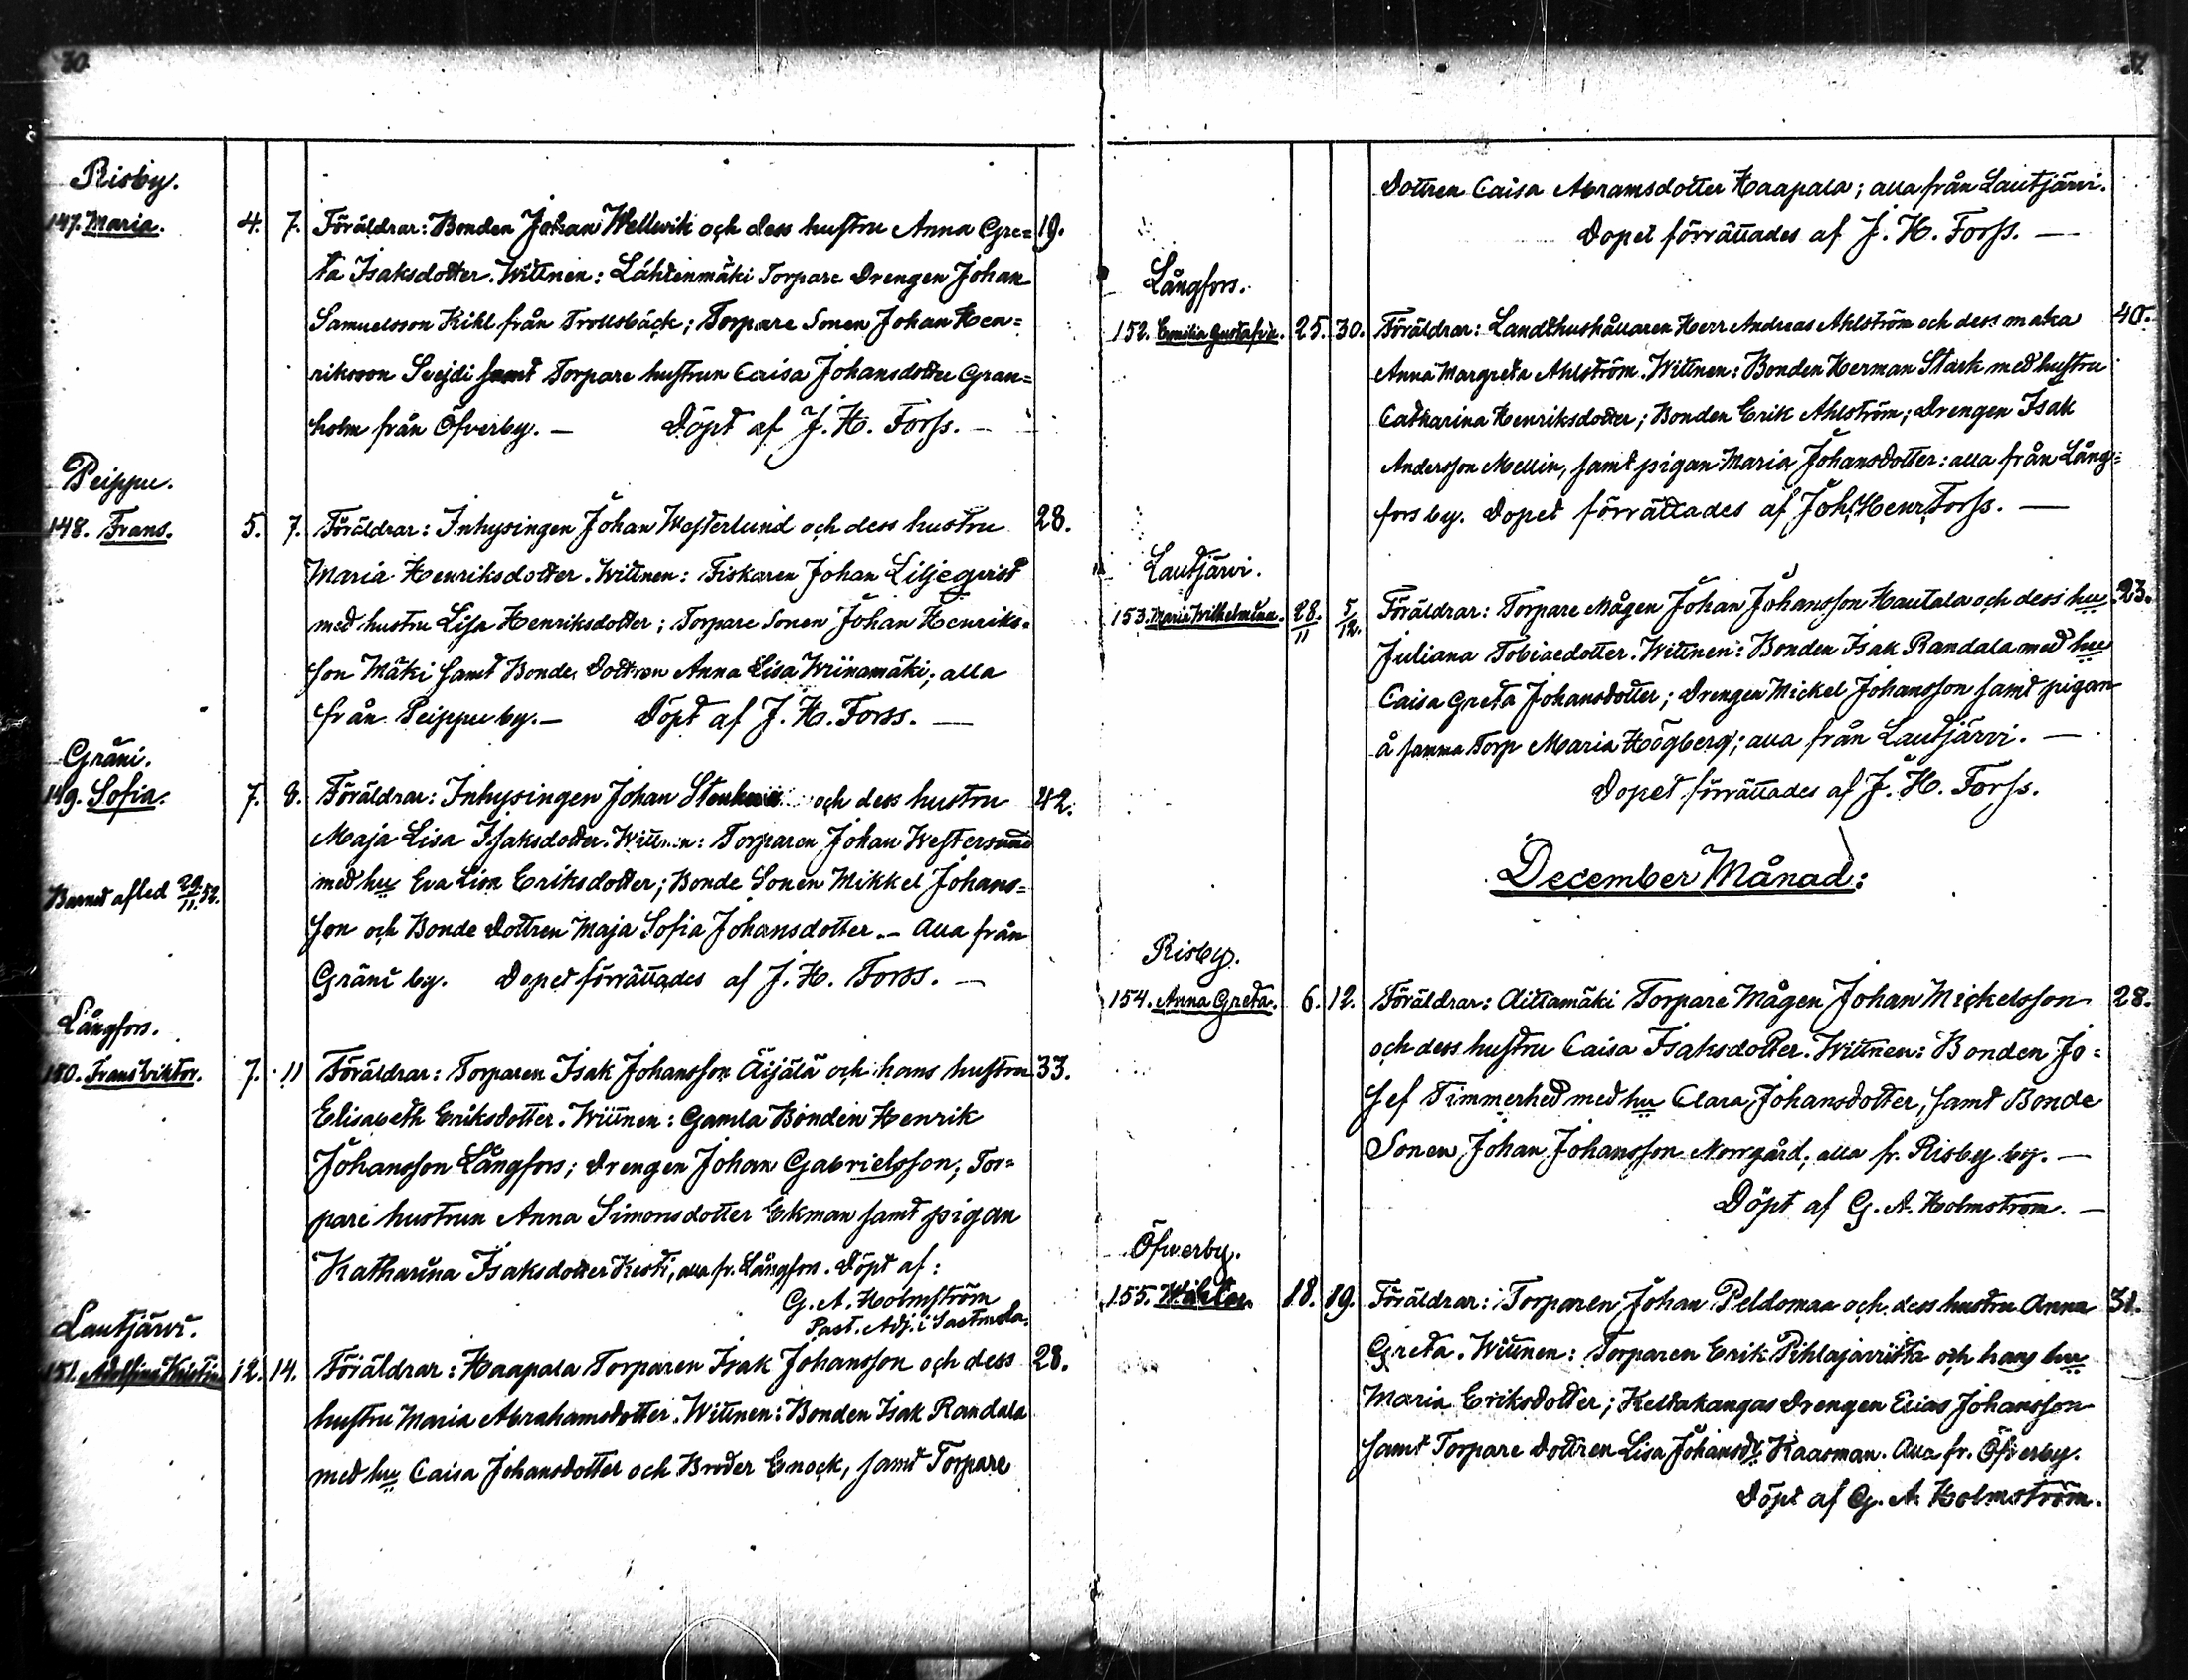 30.
Risby.
147. Maria. 4. 7. Föräldrar: Bonden Johan Wellwik och dess hustru Anna Gre= 19.
ta Isaksdotter. Wittnen: Lähtenmäki Torpare Drengen Johan
Samuelsson Kihl från Trollsbäck; Torpare Sonen Johan Hen=
riksson Svejdi samt Torpare hustrun Caisa Johansdotter Gran=
holm från Öfverby. — Döpt af J. H. Forss. —
Peippu.
148. Frans. 5. 7. Föräldrar: Inhysingen Johan Westerlund och dess hustru 28.
Maria Henriksdotter. Wittnen: Fiskaren Johan Liljeqvist
med hustru Lisa Henriksdotter; Torpare Sonen Johan Henriks=
son Mäki samt Bonde Dottren Anna Lisa Wiinamäki; alla
från Peippu by. — Döpt af J. H. Forss. —
Gräni.
149. Sofia. 7. 8. Föräldrar: Inhysingen Johan och dess hustru 42.
Maja Lisa Isaksdotter. Wittnen: Torparen Johan Westersund
med hu Eva Lisa Eriksdotter; Bonde Sonen Mikkel Johans=
Barnet afled 29/11 52.
son och Bonde Dottren Maja Sofia Johansdotter. — Alla från
Gräni by. Dopet förrättades af J. H. Forss. —
Långfors.
150. Frans Wiktor. 7. 11 Föräldrar: Torparen Isak Johansson Äijälä och hans hustru 33.
Elisabeth Eriksdotter. Wittnen: Gamla Bonden Henrik
Johansson Långfors; Drengen Johan Gabrielsson; Tor=
pare hustrun Anna Simonsdotter Ekman samt pigan
Katharina Isaksdotter Kesti, alla fr. Långfors. Döpt af:
G. A. Holmström
Past. Adj. i Sastmola.
Lautjärvi.
151. Adolfina Kristina 12. 14. Föräldrar: Haapala Torparen Isak Johansson och dess 28.
hustru Maria Abrahamsdotter. Wittnen: Bonden Isak Randala
med hu Caisa Johansdotter och Broder Enock, samt Torpare
31.
Dottren Caisa Abramsdotter Haapala; alla från Lautjärvi.
Dopet förrättades af J. H. Forss. —
Långfors.
152. Emilia Gustafva. 25. 30. Föräldrar: Landthushållaren Herr Andreas Ahlström och dess maka 40.
Anna Margreta Ahlström. Wittnen: Bonden Herman Stark med hustru
Catharina Henriksdotter; Bonden Erik Ahlström; Drengen Isak
Andersson Mellin, samt pigan Maria Johansdotter: alla från Lång=
fors by. Dopet förrättades af Joh. Henr. Forss. —
Lautjärvi.
153. Maria Wilhelmina. 28./11 5/12. Föräldrar: Torpare Mågen Johan Johansson Hautala och dess hu 23.
Juliana Tobiaedotter. Wittnen: Bonden Isak Randala med hu
Caisa Greta Johansdotter; Drengen Mickel Johansson samt pigan
å samma Torp Maria Högberg; alla från Lautjärvi. —
Dopet förrättades af J. H. Forss.
December Månad:
Risby.
154. Anna Greta. 6. 12. Föräldrar: Aittamäki Torpare Mågen Johan Mickelsson 28.
och dess hustru Caisa Isaksdotter. Wittnen: Bonden Jo=
sef Timmerhed med hu Clara Johansdotter, samt Bonde
Sonen Johan Johansson Norrgård; alla fr. Risby by. —
Döpt af G. A. Holmström. —
Öfverby.
155. 18. 19. Föräldrar: Torparen Johan Peldomaa och dess hustru Anna 31.
Greta. Wittnen: Torparen Erik Pihlajaviita och hans hu
Maria Eriksdotter; Keltakangas Drengen Elias Johansson
samt Torpare Dottren Lisa Johansdr Kaasman. Alla fr. Öfverby.
Döpt af G. A. Holmström.